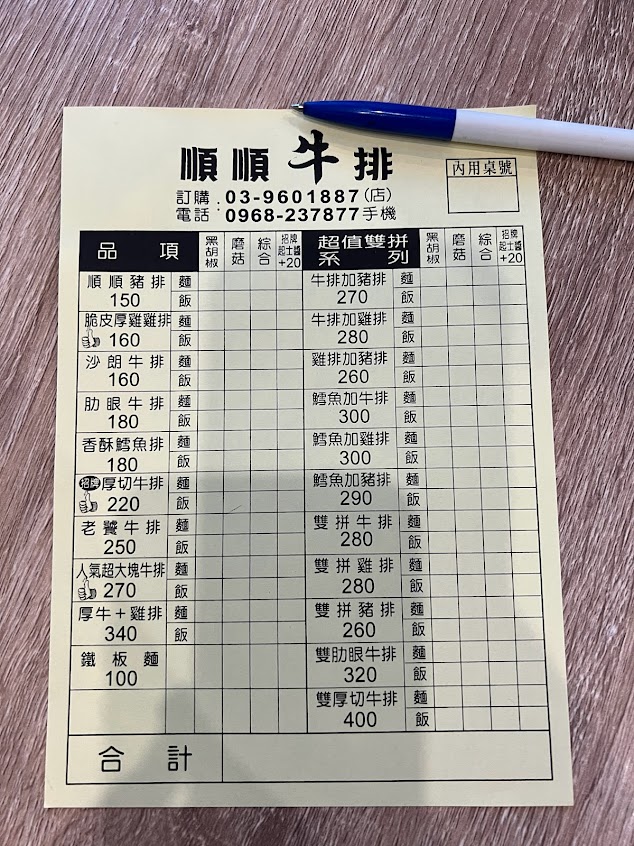 順順牛排
內用桌號
訂購電話：03-9601887(店)
0968-237877手機
品項 黑胡椒 磨菇 綜合 招牌起士醬+20
順順豬排 150 麵 飯
脆皮厚雞雞排 160 麵 飯
沙朗牛排 160 麵 飯
肋眼牛排 180 麵 飯
香酥鱈魚排 180 麵 飯
招牌厚切牛排 220 麵 飯
老饕牛排 250 麵 飯
人氣超大塊牛排 270 麵 飯
厚牛+雞排 340 麵 飯
鐵板麵 100
超值雙拼系列 黑胡椒 磨菇 綜合 招牌起士醬+20
牛排加豬排 270 麵 飯
牛排加雞排 280 麵 飯
雞排加豬排 260 麵 飯
鱈魚加牛排 300 麵 飯
鱈魚加雞排 300 麵 飯
鱈魚加豬排 290 麵 飯
雙拼牛排 280 麵 飯
雙拼雞排 280 麵 飯
雙拼豬排 260 麵 飯
雙肋眼牛排 320 麵 飯
雙厚切牛排 400 麵 飯
合計